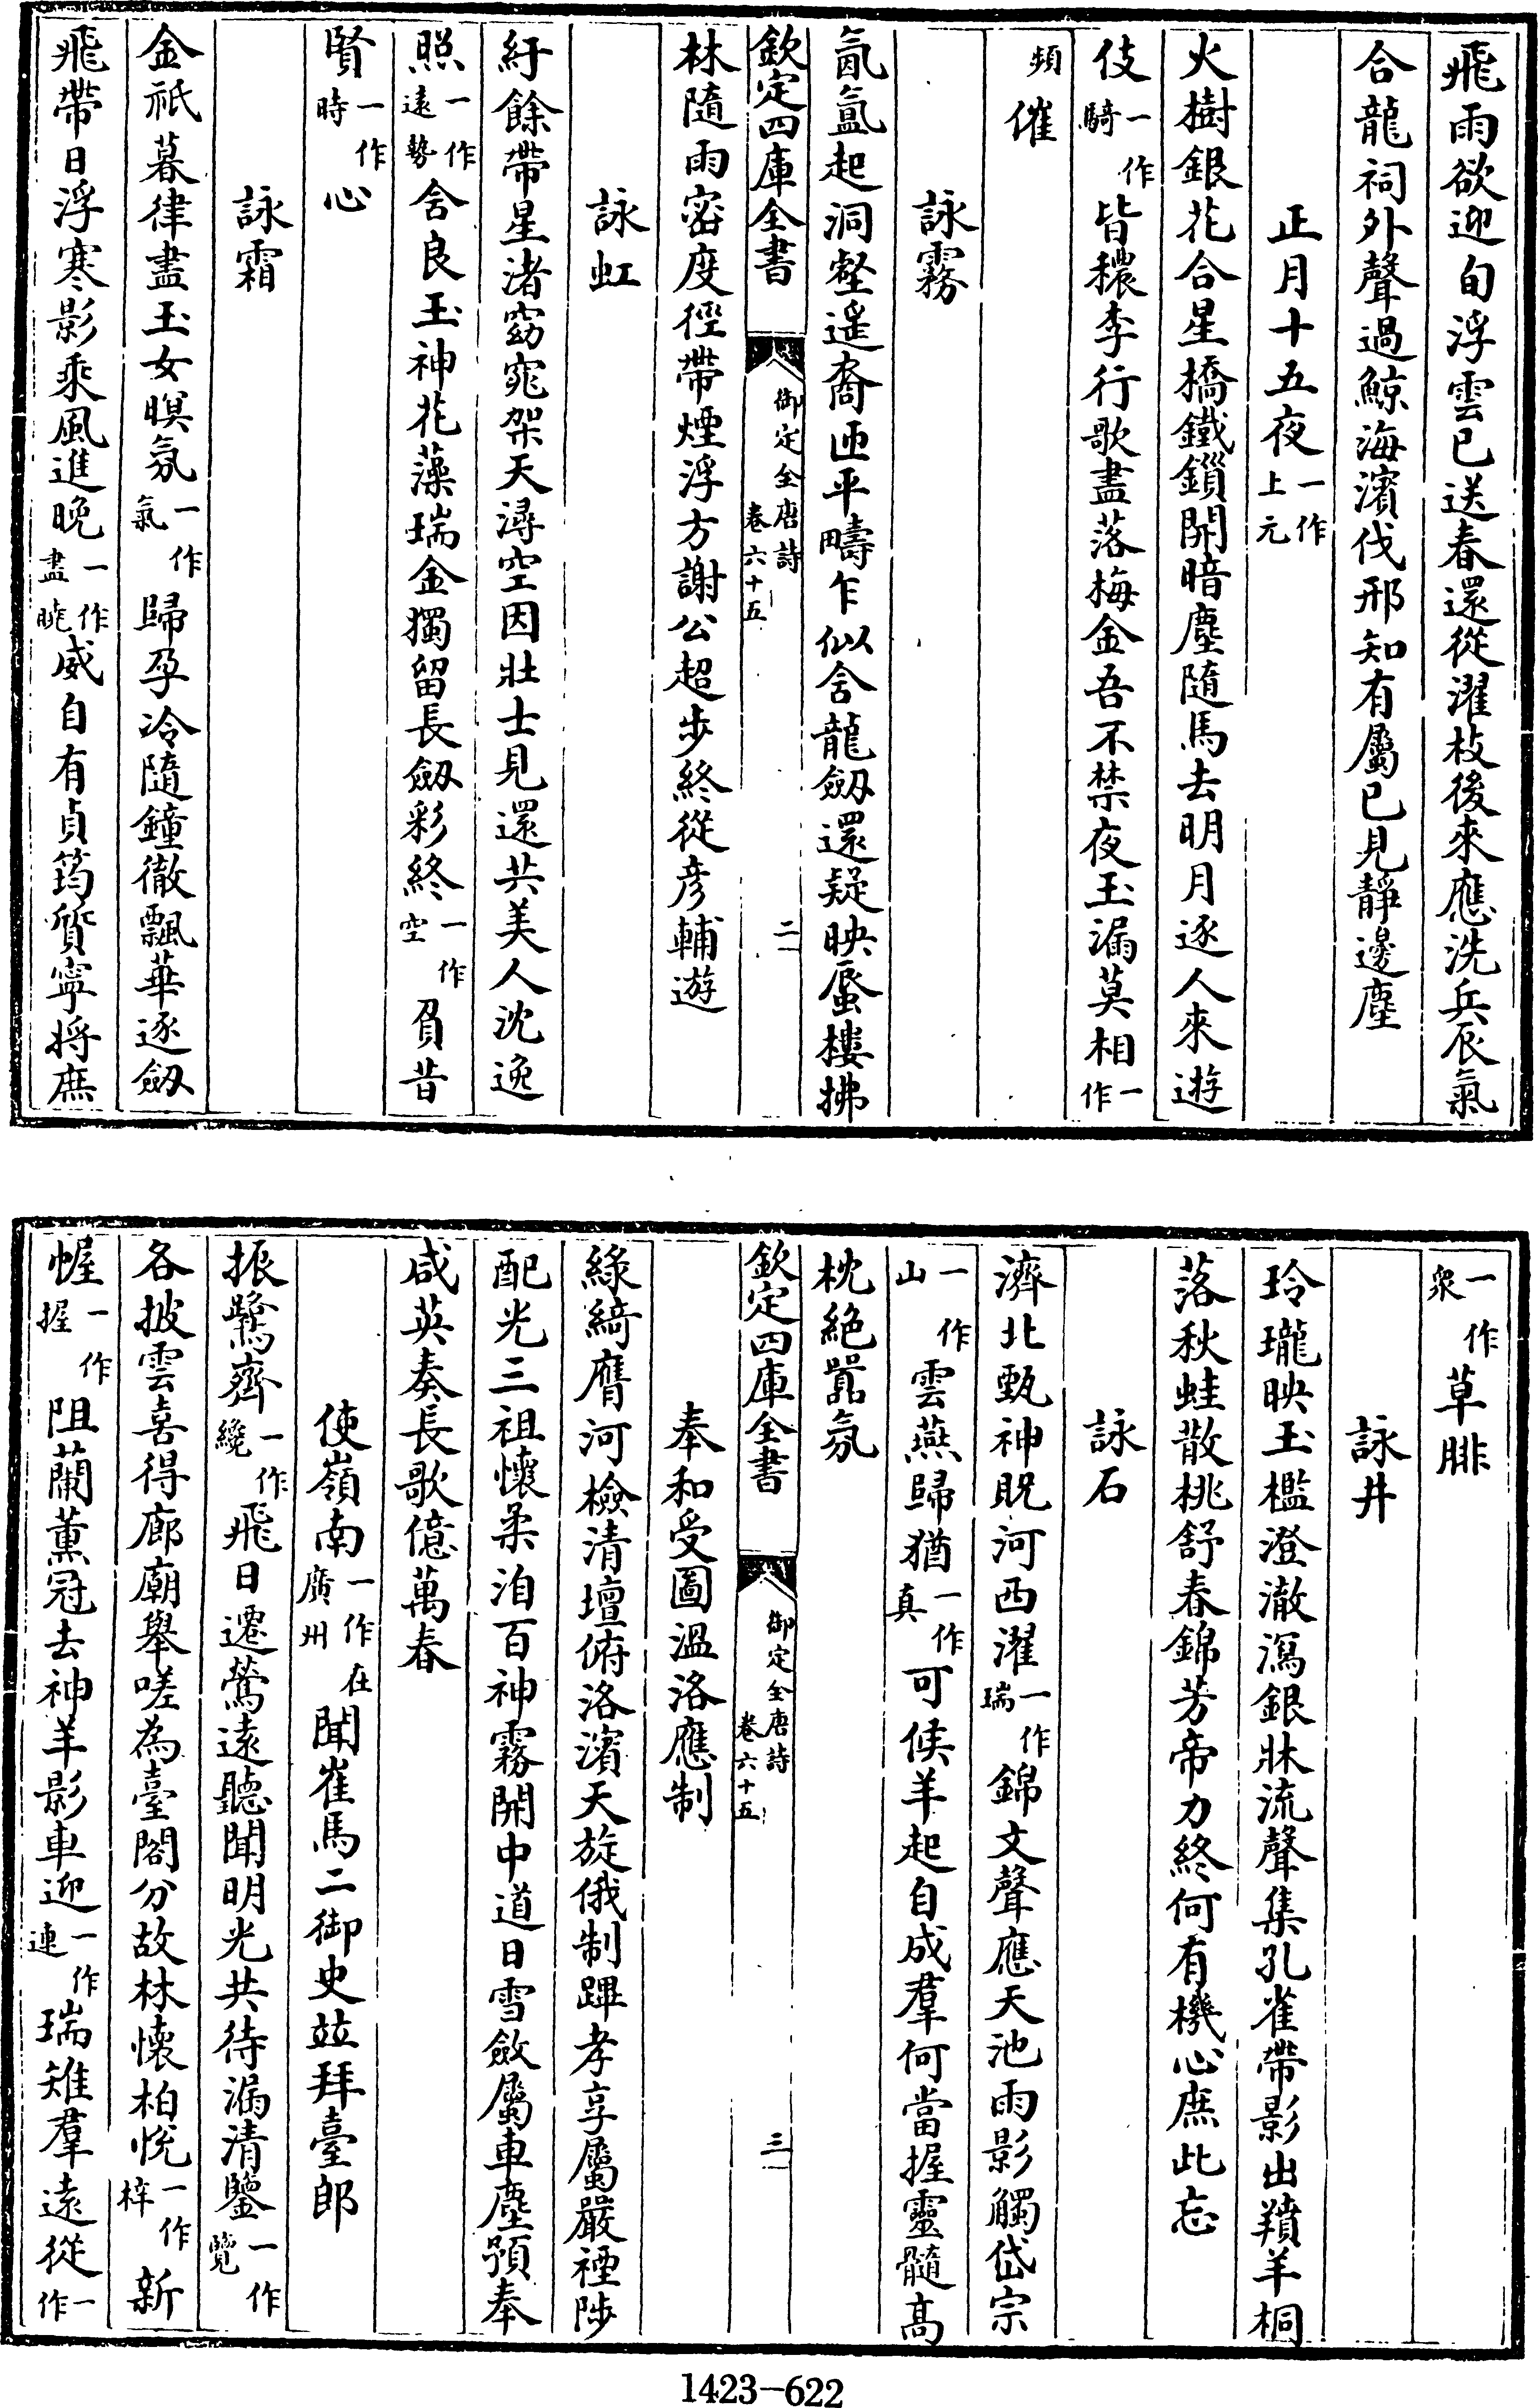 飛雨欲迎旬浮雲已送春還從濯枝後來應洗兵辰氣
合龍祠外聲過鯨海濱伐邢知有屬已見靜邊塵
正月十五夜一作上元
火樹銀花合星橋鐵鎖開暗塵隨馬去明月逐人來遊
伎一作騎皆穠李行歌盡落梅金吾不禁夜玉漏莫相一作
頻催
詠霧
氤氳起洞壑遙裔匝平疇乍似含龍劒還疑映蜃樓拂
欽定四庫全書 御定全唐詩卷六十五 二
林隨雨密度徑帶煙浮方謝公超步終從彦輔遊
詠虹
紆餘帶星渚窈窕架天潯空因壯士見還共美人沈逸
照一作遠勢含良玉神花藻瑞金獨留長劒彩終一作空負昔
賢一作時心
詠霜
金祇暮律盡玉女暝氛一作氣歸孕冷隨鐘徹飄華逐劒
飛帶日浮寒影乘風進晚一作盡曉威自有貞筠質寧將庶
一作衆草腓
詠井
玲瓏映玉檻澄澈瀉銀牀流聲集孔雀帶影出羵羊桐
落秋蛙散桃舒春錦芳帝力終何有機心庶此忘
詠石
濟北甄神貺河西濯一作瑞錦文聲應天池雨影觸岱宗
一作山雲燕歸猶一作真可候羊起自成羣何當握靈髓高
枕絶囂氛
欽定四庫全書 御定全唐詩卷六十五 三
奉和受圖溫洛應制
綠綺膺河檢清壇俯洛濱天旋俄制蹕孝享屬嚴禋陟
配光三祖懷柔洎百神霧開中道日雪斂屬車塵預奉
咸英奏長歌億萬春
使嶺南一作在廣州聞崔馬二御史竝拜臺郎
振鷺齊一作纔飛日遷鶯遠聽聞明光共待漏清鑒一作覽
各披雲喜得廊廟舉嗟為臺閣分故林懷柏悅一作梓新
幄一作握阻蘭薰冠去神羊影車迎一作連瑞雉羣遠從一作
1423-622